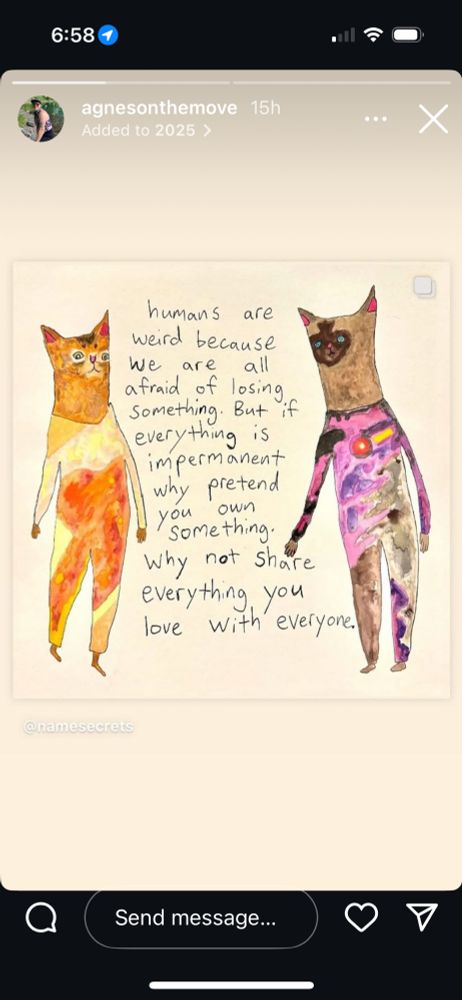 6:58
agnesonthemove 15h
Added to 2025 >
humans are
weird because
we are all
afraid of losing
something. But if
everything is
impermanent
why pretend
you own
something.
Why not share
everything you
love with everyone.
@namesecrets
Send message...